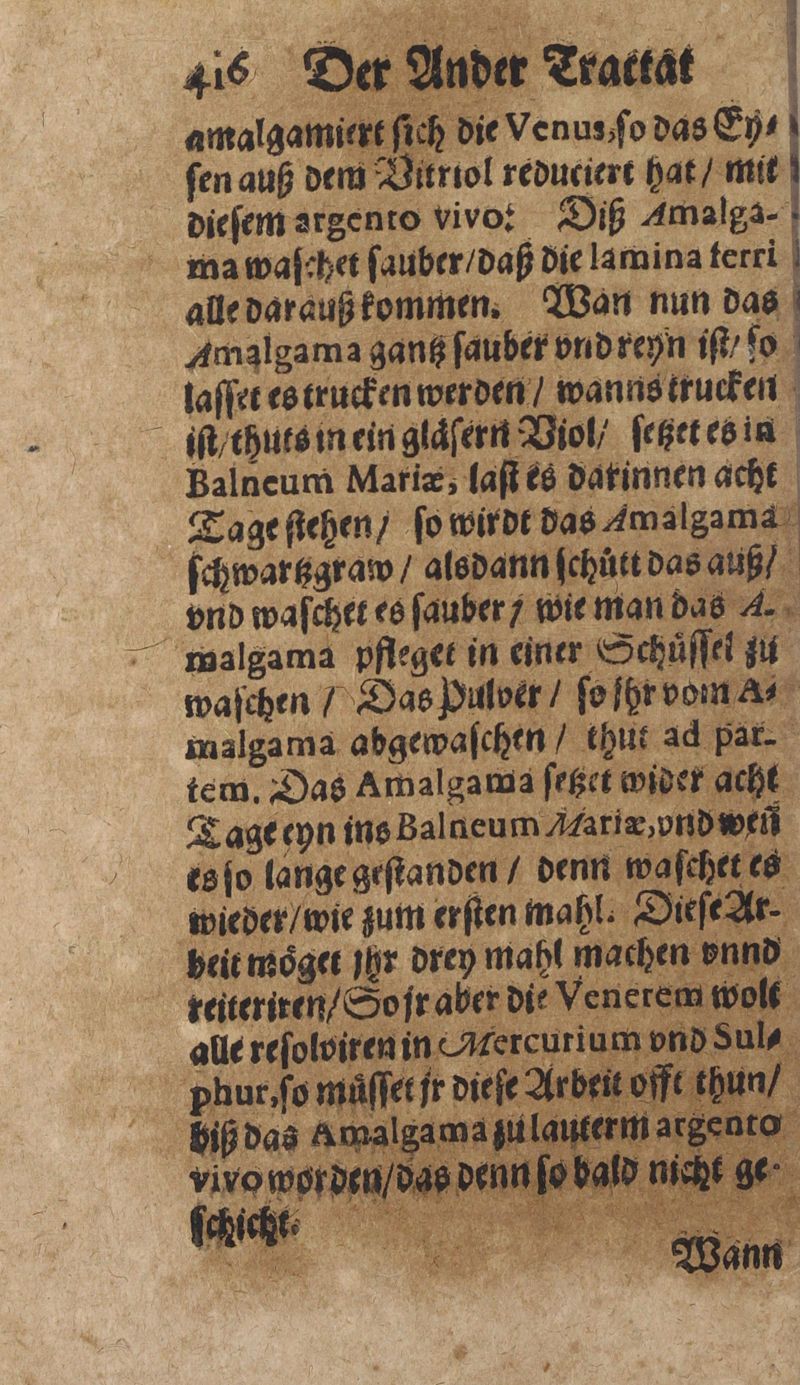 416 Der Ander Tractat
amalgamiert ſich die Venus, ſo das Ey⸗
ſen auß dem Vitriol reduciert hat / mit
dieſem argento vivo: Diß Amalga-
ma waſchet ſauber / daß die lamina ferri
alle darauß kommen. Wan nun das
Amalgama gantz ſauber vnd reyn iſt / ſo
laſſet es trucken werden / wanns trucken
iſt / thuts in ein glåſern Viol / ſetzet es in
Balneum Mariæ, laſt es darinnen acht
Tage ſtehen / ſo wirdt das Amalgama
ſchwartzgraw / alsdann ſchůtt das auß /
vnd waſchet es ſauber / wie man das A-
malgama pfleget in einer Schůſſel zu
waſchen / Das Pulver / ſo jhr vom A⸗
malgama abgewaſchen / thut ad par-
tem. Das Amalgama ſetzet wider acht
Tage eyn ins Balneum Mariæ, vnd weñ
es ſo lange geſtanden / denn waſchet es
wieder / wie zum erſten mahl. Dieſe Ar-
beit mőget jhr drey mahl machen vnnd
reiteriren / So jr aber die Venerem wolt
alle reſolviren in Mercurium vnd Sul⸗
phur, ſo můſſet jr dieſe Arbeit offt thun /
biß das Amalgama zu lauterm argento
vivo worden / das denn ſo bald nicht ge-
ſchicht.
Wann